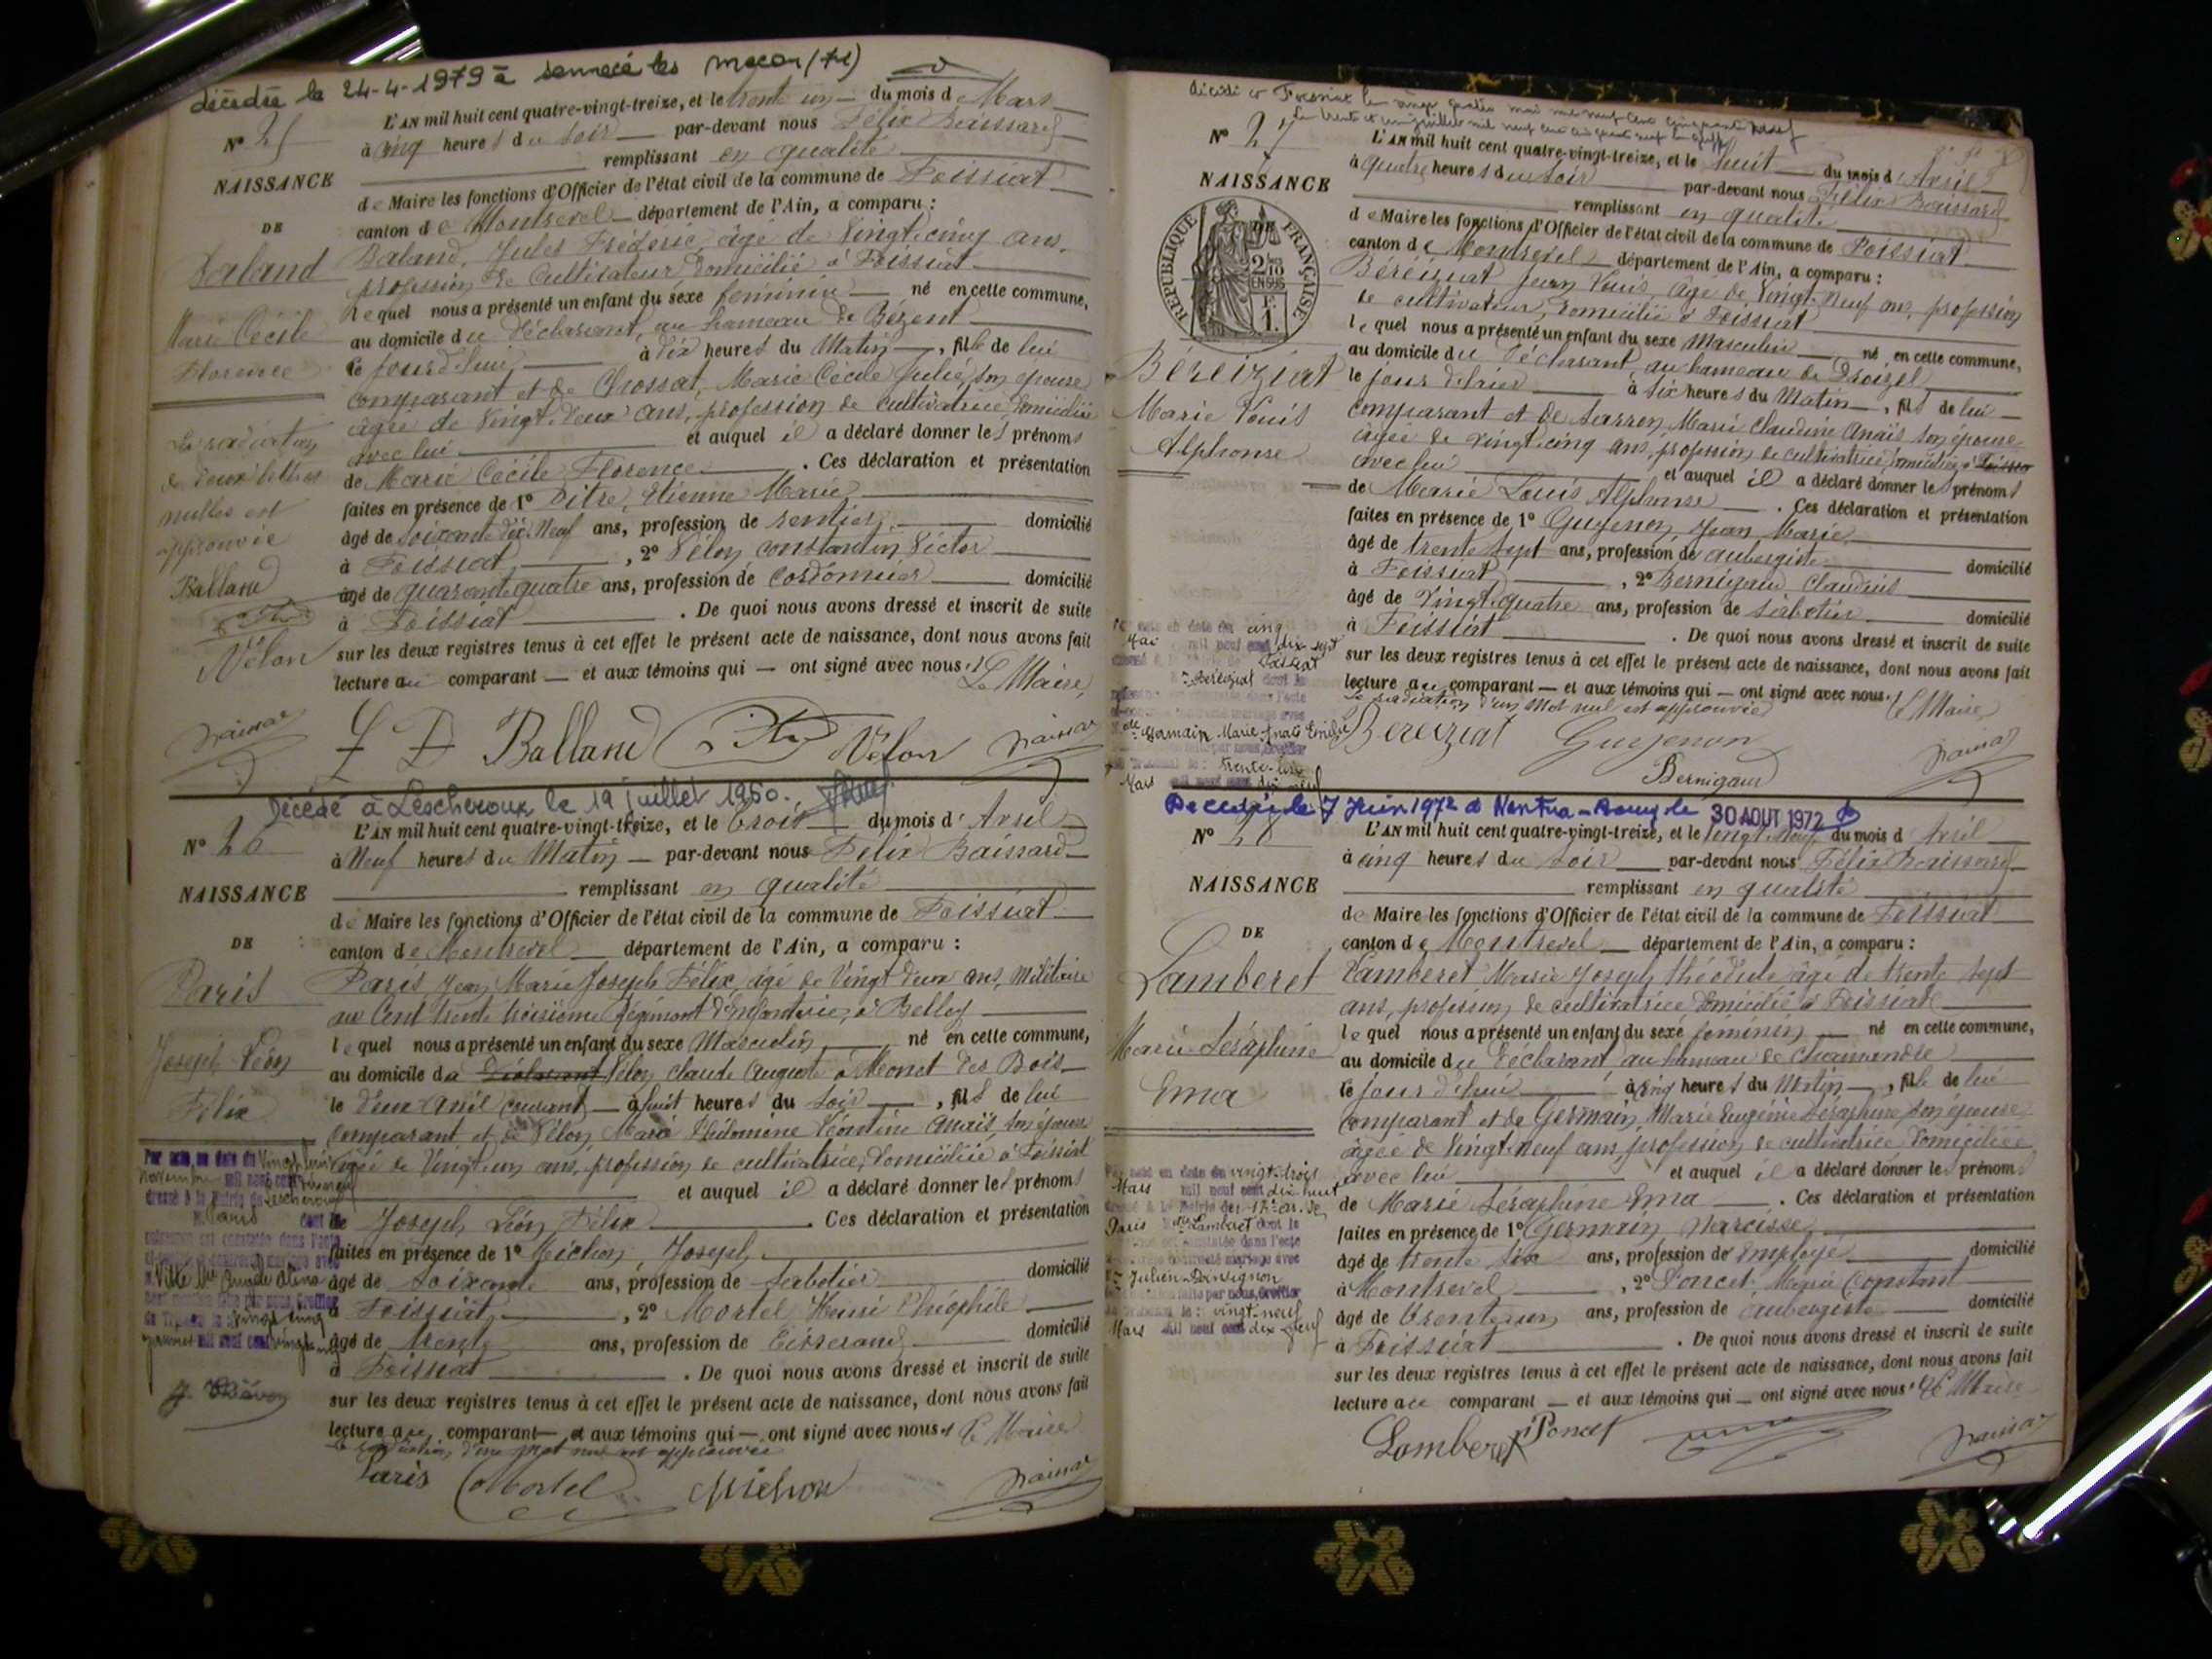 décédée le 24-4-1979 à Sennecé les Macon (71)
L'AN mil huit cent quatre-vingt-treize, et le trente un du mois d Mars
N° 25
à cinq heures du soir par-devant nous Félix Baissard
NAISSANCE
remplissant en qualité
de Maire les fonctions d'Officier de l'état civil de la commune de Foissiat
DE
canton de Montrevel département de l'Ain, a comparu :
Baland
Baland, Jules Frédéric, âgé de Vingt-cinq ans,
profession de Cultivateur domicilié à Foissiat
lequel nous a présenté un enfant du sexe féminin né en cette commune,
Marie Cécile
au domicile du déclarant, au hameau de Bézent
Florence
le jourd'hui à dix heures du Matin, fille de lui
comparant et de Chossat, Marie Cécile Julie, son épouse
âgée de Vingt-deux ans, profession de cultivatrice, domiciliée
avec lui et auquel il a déclaré donner les prénoms
La radiation
de deux lettres
nulles est
approuvée
Balland
Vélon
de Marie Cécile Florence. Ces déclaration et présentation
faites en présence de 1° Pitre, Etienne Marie
âgé de soixante dix-Neuf ans, profession de rentier, domicilié
à Foissiat, 2° Vélon Constantin Victor
âgé de quarante quatre ans, profession de Cordonnier domicilié
à Foissiat. De quoi nous avons dressé et inscrit de suite
sur les deux registres tenus à cet effet le présent acte de naissance, dont nous avons fait
lecture au comparant — et aux témoins qui — ont signé avec nous. Le Maire,
Balland Vélon
Décédé à Lescheroux le 19 juillet 1960.
L'AN mil huit cent quatre-vingt-treize, et le trois du mois d'Avril
N° 26
à Neuf heures du Matin par-devant nous Félix Baissard
NAISSANCE
remplissant en qualité
de Maire les fonctions d'Officier de l'état civil de la commune de Foissiat
DE
canton de Montrevel département de l'Ain, a comparu :
Paris
Paris, Jean Marie Joseph Félix, âgé de Vingt deux ans, Militaire
au Cent trente troisième Régiment d'Infanterie, à Belley
lequel nous a présenté un enfant du sexe Masculin, né en cette commune,
Joseph Léon
Félix
au domicile de Déclarant Vélon Claude Auguste à Monet des Bois
le deux Avril courant à huit heures du soir, fils de lui
comparant et de Vélon, Marie Philomène Léontine Anaïs, son épouse
âgée de Vingt-un ans, profession de cultivatrice, domiciliée à Foissiat
et auquel il a déclaré donner les prénoms
de Joseph Léon Félix. Ces déclaration et présentation
faites en présence de 1° Michon, Joseph
âgé de Soixante ans, profession de Sabotier domicilié
à Foissiat, 2° Mortel Henri Théophile
âgé de trente ans, profession de Tisserand domicilié
à Foissiat. De quoi nous avons dressé et inscrit de suite
sur les deux registres tenus à cet effet le présent acte de naissance, dont nous avons fait
lecture au comparant — et aux témoins qui — ont signé avec nous. Le Maire
la radiation d'un mot nul est approuvée
Paris Mortel Michon
L'AN mil huit cent quatre-vingt-treize, et le huit du mois d'Avril
N° 27
à quatre heures du soir par-devant nous Félix Baissard
NAISSANCE
remplissant en qualité
REPUBLIQUE FRANÇAISE
de Maire les fonctions d'Officier de l'état civil de la commune de Foissiat
canton de Montrevel département de l'Ain, a comparu :
Béréiziat Jean Louis, âgé de Vingt-Neuf ans, profession
de cultivateur, domicilié à Foissiat
lequel nous a présenté un enfant du sexe Masculin né en cette commune,
au domicile du déclarant, au hameau de
Béréiziat
Marie Louis
Alphonse
le jour d'hier à six heures du Matin, fils de lui
comparant et de Marie Claudine Anaïs son épouse
âgée de vingt cinq ans, profession de cultivatrice, domiciliée
avec lui et auquel il a déclaré donner les prénoms
de Marie Louis Alphonse. Ces déclaration et présentation
faites en présence de 1° Guyenon, Jean Marie
âgé de trente sept ans, profession de aubergiste domicilié
à Foissiat, 2° Bernigaud Claudius
âgé de Vingt-quatre ans, profession de sabotier domicilié
à Foissiat. De quoi nous avons dressé et inscrit de suite
sur les deux registres tenus à cet effet le présent acte de naissance, dont nous avons fait
lecture au comparant — et aux témoins qui — ont signé avec nous. Le Maire
la radiation d'un mot nul est approuvée
Béréziat Guyenon
Bernigaud
Décédée le 7 Juin 1972 à 30 AOUT 1972
L'AN mil huit cent quatre-vingt-treize, et le Vingt-Neuf du mois d Avril
N° 28
à cinq heures du soir par-devant nous Félix Baissard
NAISSANCE
remplissant en qualité
de Maire les fonctions d'Officier de l'état civil de la commune de Foissiat
DE
canton de Montrevel département de l'Ain, a comparu :
Lamberet
Lamberet Marie Joseph Théodule âgé de trente sept
ans, profession de cultivatrice domicilié à Foissiat
lequel nous a présenté un enfant du sexe féminin né en cette commune,
Marie Séraphine
Ema
au domicile du déclarant, au hameau de Chamandre
le jour d'hui à cinq heures du Matin, fille de lui
comparant et de Germain, Marie Eugénie Séraphine son épouse
âgée de Vingt-neuf ans, profession de cultivatrice domiciliée
avec lui et auquel il a déclaré donner les prénoms
de Marie Séraphine Ema. Ces déclaration et présentation
faites en présence de 1° Germain, Narcisse
âgé de trente six ans, profession de Employé domicilié
à Montrevel, 2° Poncet, Marie Constant
âgé de trente un ans, profession de aubergiste domicilié
à Foissiat. De quoi nous avons dressé et inscrit de suite
sur les deux registres tenus à cet effet le présent acte de naissance, dont nous avons fait
lecture au comparant — et aux témoins qui — ont signé avec nous. Le Maire
Lamberet Poncet